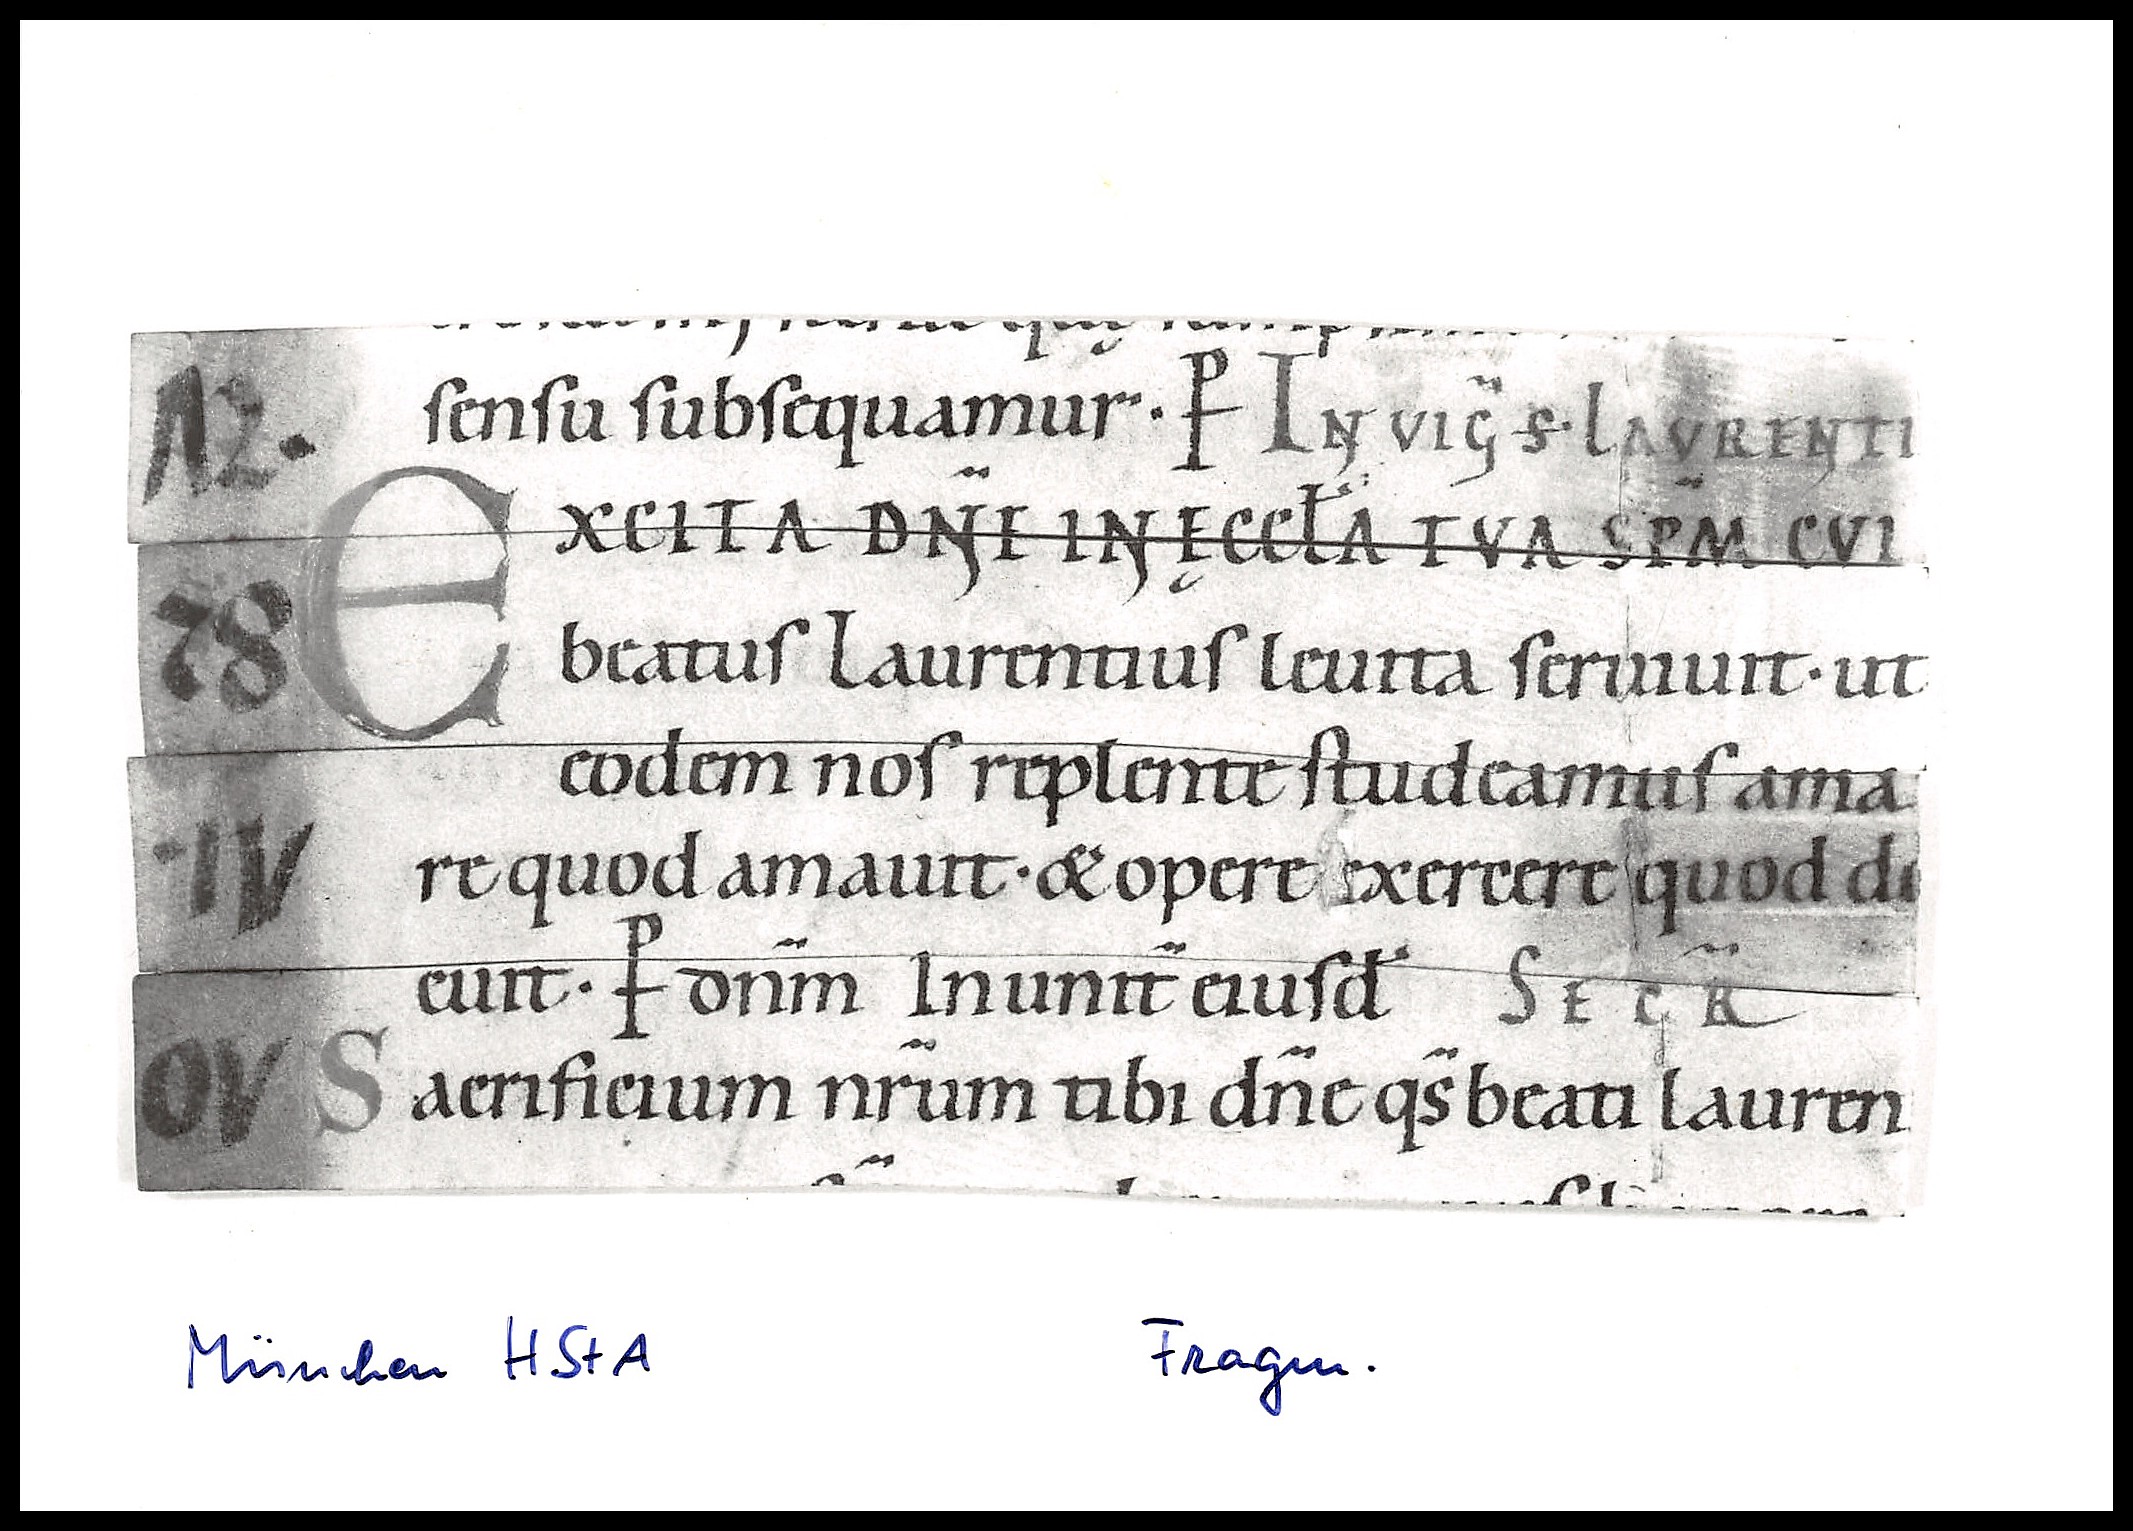 sensu subsequamur. P IN VIG̅ S. LAVRENTI
EXCITA DN̅E IN ĘCCL̅A TVA SPM̅ CVI
beatus Laurentius leuita seruiuit. ut
eodem nos replente studeamus ama
re quod amauit. & opere exercere quod do
cuit. P dnm̅ In unit̅ eiusd̅ SECR̅
Sacrificium nr̅um tibi dn̅e qs̅ beati lauren
12.
78
IV
OV
München HStA
Fragm.